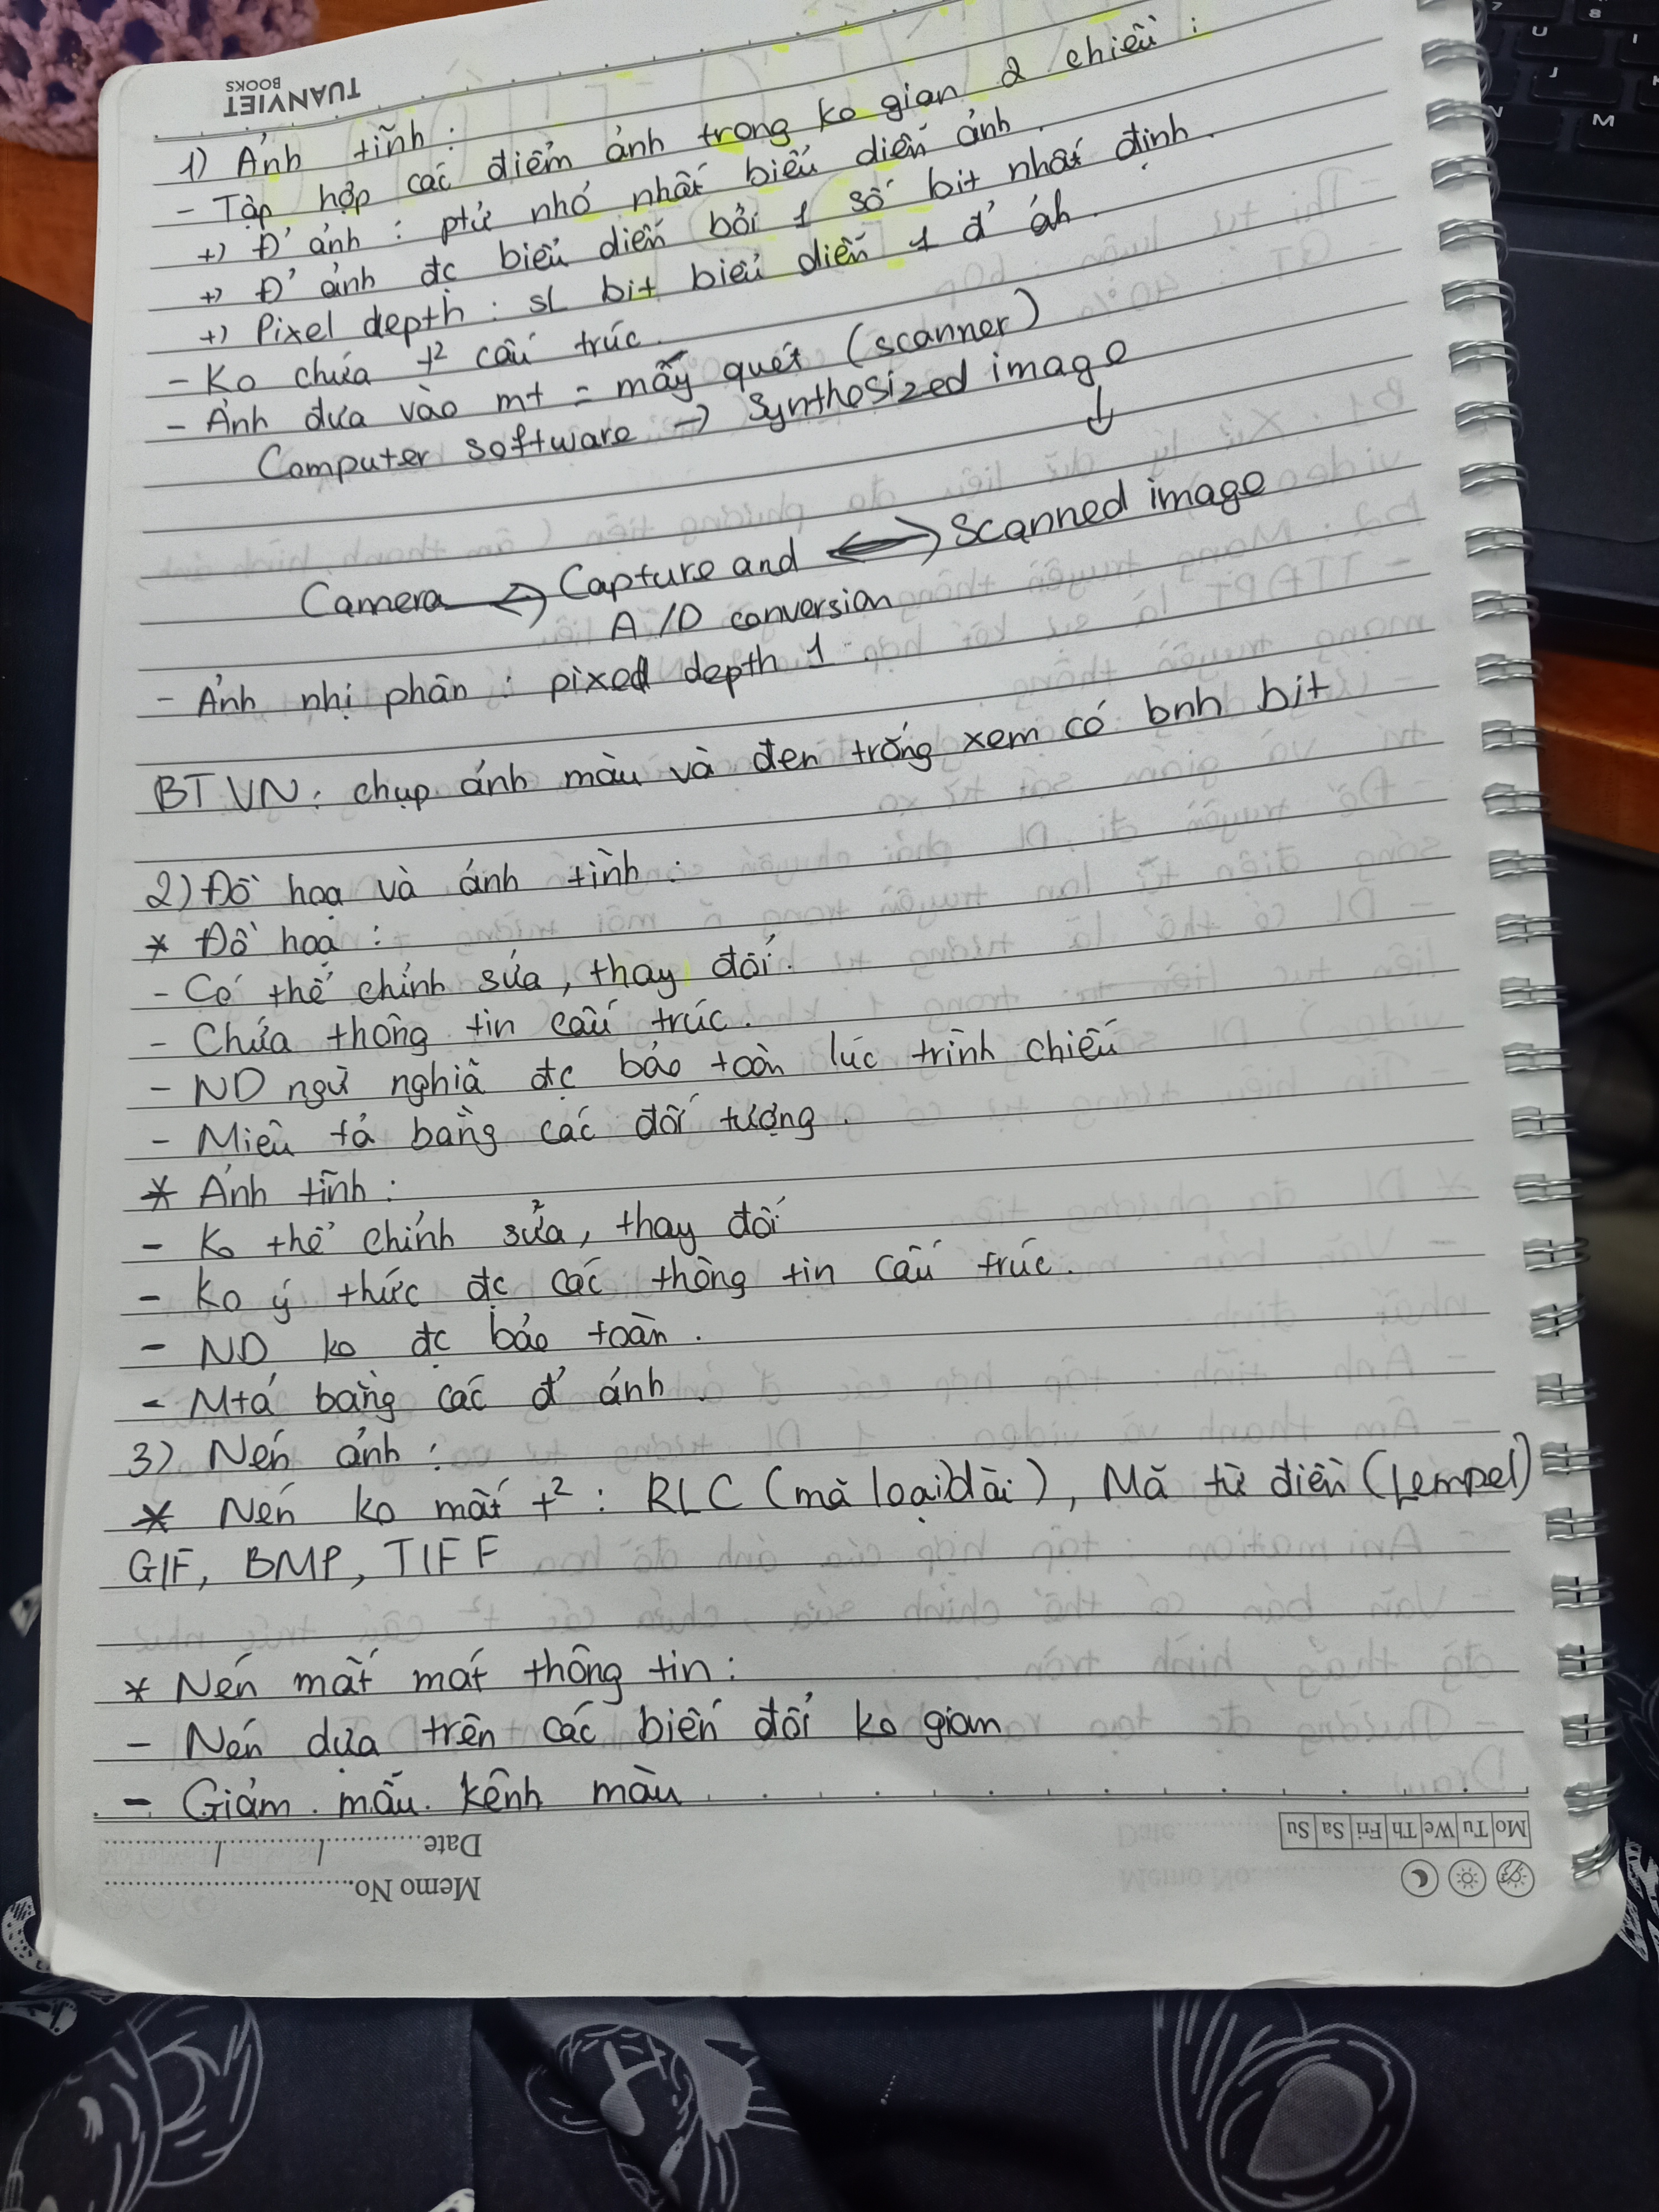 TUANVIET
BOOKS
1) Ảnh tĩnh :
- Tập hợp các điểm ảnh trong ko gian 2 chiều :
+) Đ' ảnh : ptử nhỏ nhất biểu diễn ảnh.
+) Đ' ảnh đc biểu diễn bởi 1 số bit nhất định.
+) Pixel depth : sL bit biểu diễn 1 đ' ảh.
- Ko chứa t² cấu trúc.
- Ảnh đưa vào mt = mấy quét (scanner)
Computer software → Synthesized image
↓
Camera ↔ Capture and ↔ Scanned image
A/D conversion
- Ảnh nhị phân : pixel depth 1
BTVN : chụp ảnh màu và đen trắng xem có bnh bit
2) Đồ hoạ và ảnh tĩnh :
* Đồ hoạ :
- Có thể chỉnh sửa, thay đổi.
- Chứa thông tin cấu trúc.
- ND ngữ nghĩa đc bảo toàn lúc trình chiếu
- Miêu tả bằng các đối tượng.
* Ảnh tĩnh :
- Ko thể chỉnh sửa, thay đổi
- Ko ý thức đc các thông tin cấu trúc.
- ND ko đc bảo toàn.
- Mtả bằng các đ' ảnh.
3) Nén ảnh :
* Nén ko mất t² : RLC (mã loạt dài), Mã từ điển (Lempel)
GIF, BMP, TIFF
* Nén mất mát thông tin :
- Nén dựa trên các biến đổi ko gian
- Giảm mẫu kênh màu
Date
Mo Tu We Th Fri Sa Su
Memo No.